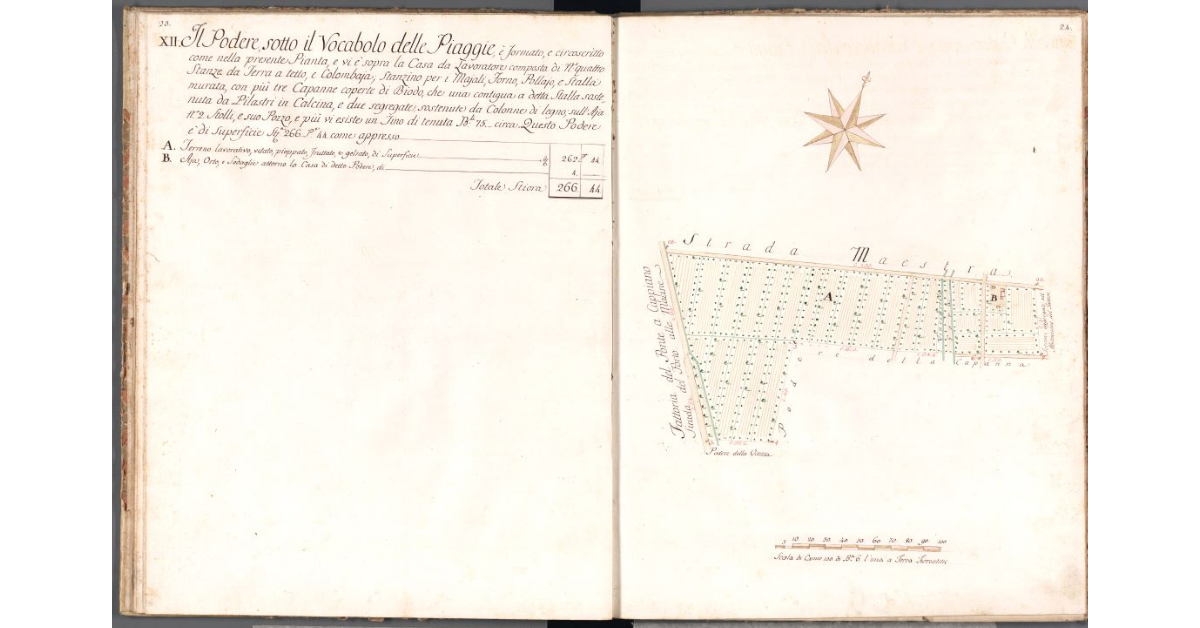 23.
XII. Il Podere, sotto il Vocabolo delle Piaggie, è formato, e circoscritto
come nella presente Pianta, e vi è sopra la Casa da Lavoratore composta di N.º quattro
Stanze da Terra a tetto, e Colombaja, Stanzino per i Majali, Forno, Pollajo, e Stalla
murata, con più tre Capanne coperte di Biodo, che una contigua a detta Stalla soste-
nuta da Pilastri in Calcina, e due segregate sostenute da Colonne di legno, sull'Aja
n.º 2. Stolli, e suo Pozzo, e più vi esiste un Tino di tenuta B.li 75. circa Questo Podere
è di Superficie 266. 44 come appresso
A. Terreno lavorativo, vitato, pioppato, fruttato, e gelsato, di Superficie 262. 44
B. Aja, Orto, e Sodaglie attorno la Casa di detto Podere, di 4.
Totale Stiora 266. 44
24.
Strada Maestra
A
B
Fattoria del Ponte a Cappiano
Strada del Porto alle Madine
Podere della Capanna
Podere della Vinzza
5 10 20 30 40 50 60 70 80 90 100
Scala di Canne 100 di B.a 6. l'una a Terra Fiorentina